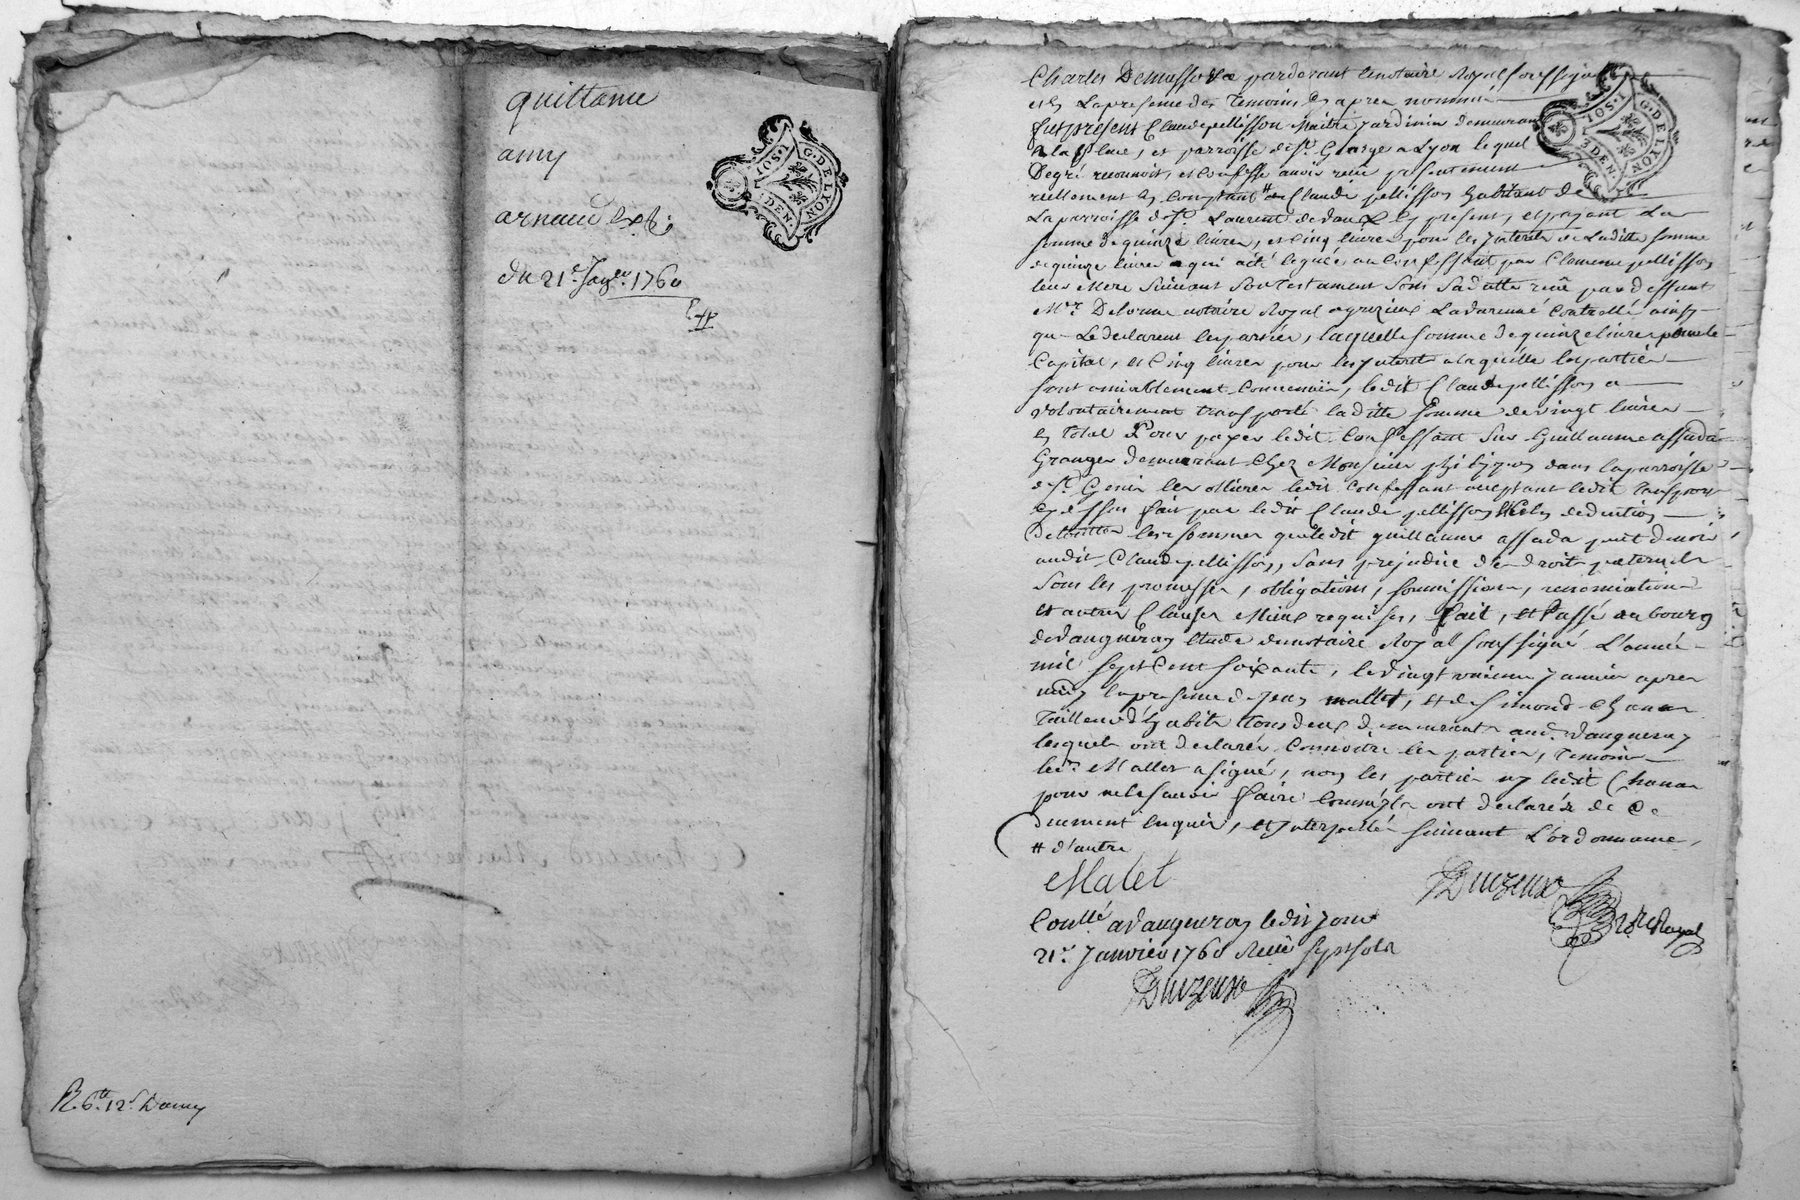 quittance
amy
arnaud
du 21e. Janer. 1760
G. DE LYON
1. SOL
DEN.
R. 6tt. 12s. Damy
par devant le notaire Royal soussigné
et en La presence des Temoins cy apres nommés
fut present Claude pellisson Maitre Jardinier demeurant
a la et parroisse de st. George a Lyon lequel
Degré reconnoit, et Confesse avoir recu presentement
reellement et Comptant # de Claude pellisson habitant de
La parroisse de st. Laurent de vaux cy present, et payant La
somme de quinze livres, et Cinq livres pour les Interets de Laditte somme
de quinze livres qui a été leguée au Confessant par Clemence pellisson
leur Mere Suivant Son testament Sous Sa datte reçu par deffunt
Mre. Delorme notaire Royal a grezieux Lavarenne Controllé ainsy
que Le declarent les parties, laquelle somme de quinze livres pour le
Capital, et Cinq livres pour les Interets a laquelle les parties
sont amiablement Convenües, ledit Claude pellisson a
volontairement transporté laditte somme de vingt livres
en total Pour payer ledit Confessant Sur Guillaume assada
Granger demeurant Chez Monsieur philipon dans la parroisse
de st. Genis les ollieres ledit Confessant acceptant ledit transport
cy dessus fait par ledit Claude pellisson deduction
les sommes que ledit guillaume assada peut devoir
audit Claude pellisson, sans prejudice des droits paternels
Sous les promesses, obligations, soumissions, renonciations
et autres Clauses Mieux requises, fait, et Passé au bourg
de vaugneray etude du notaire Royal soussigné L'année
mil sept Cent soixante, le vingt unieme Janvier apres
midy la presence de Jean mallet, et de Simond Chanas
Tailleur d'habits tous deux demeurants aud. vaugneray
lesquels ont declarés Connoitre les parties, Temoins
led. Mallet a signé, non les parties ny ledit Chanas
pour ne le savoir faire Comme ils ont declarés de Ce
duement enquis, et Interpellés suivant L'ordonnance,
# d'autre
Malet
Duizeux
Nore Royal
Conllé a vaugneray ledit jour
21e. Janvier 1760 Receu sept sols
Duizeux
G. DE LYON
1. SOL
DEN.